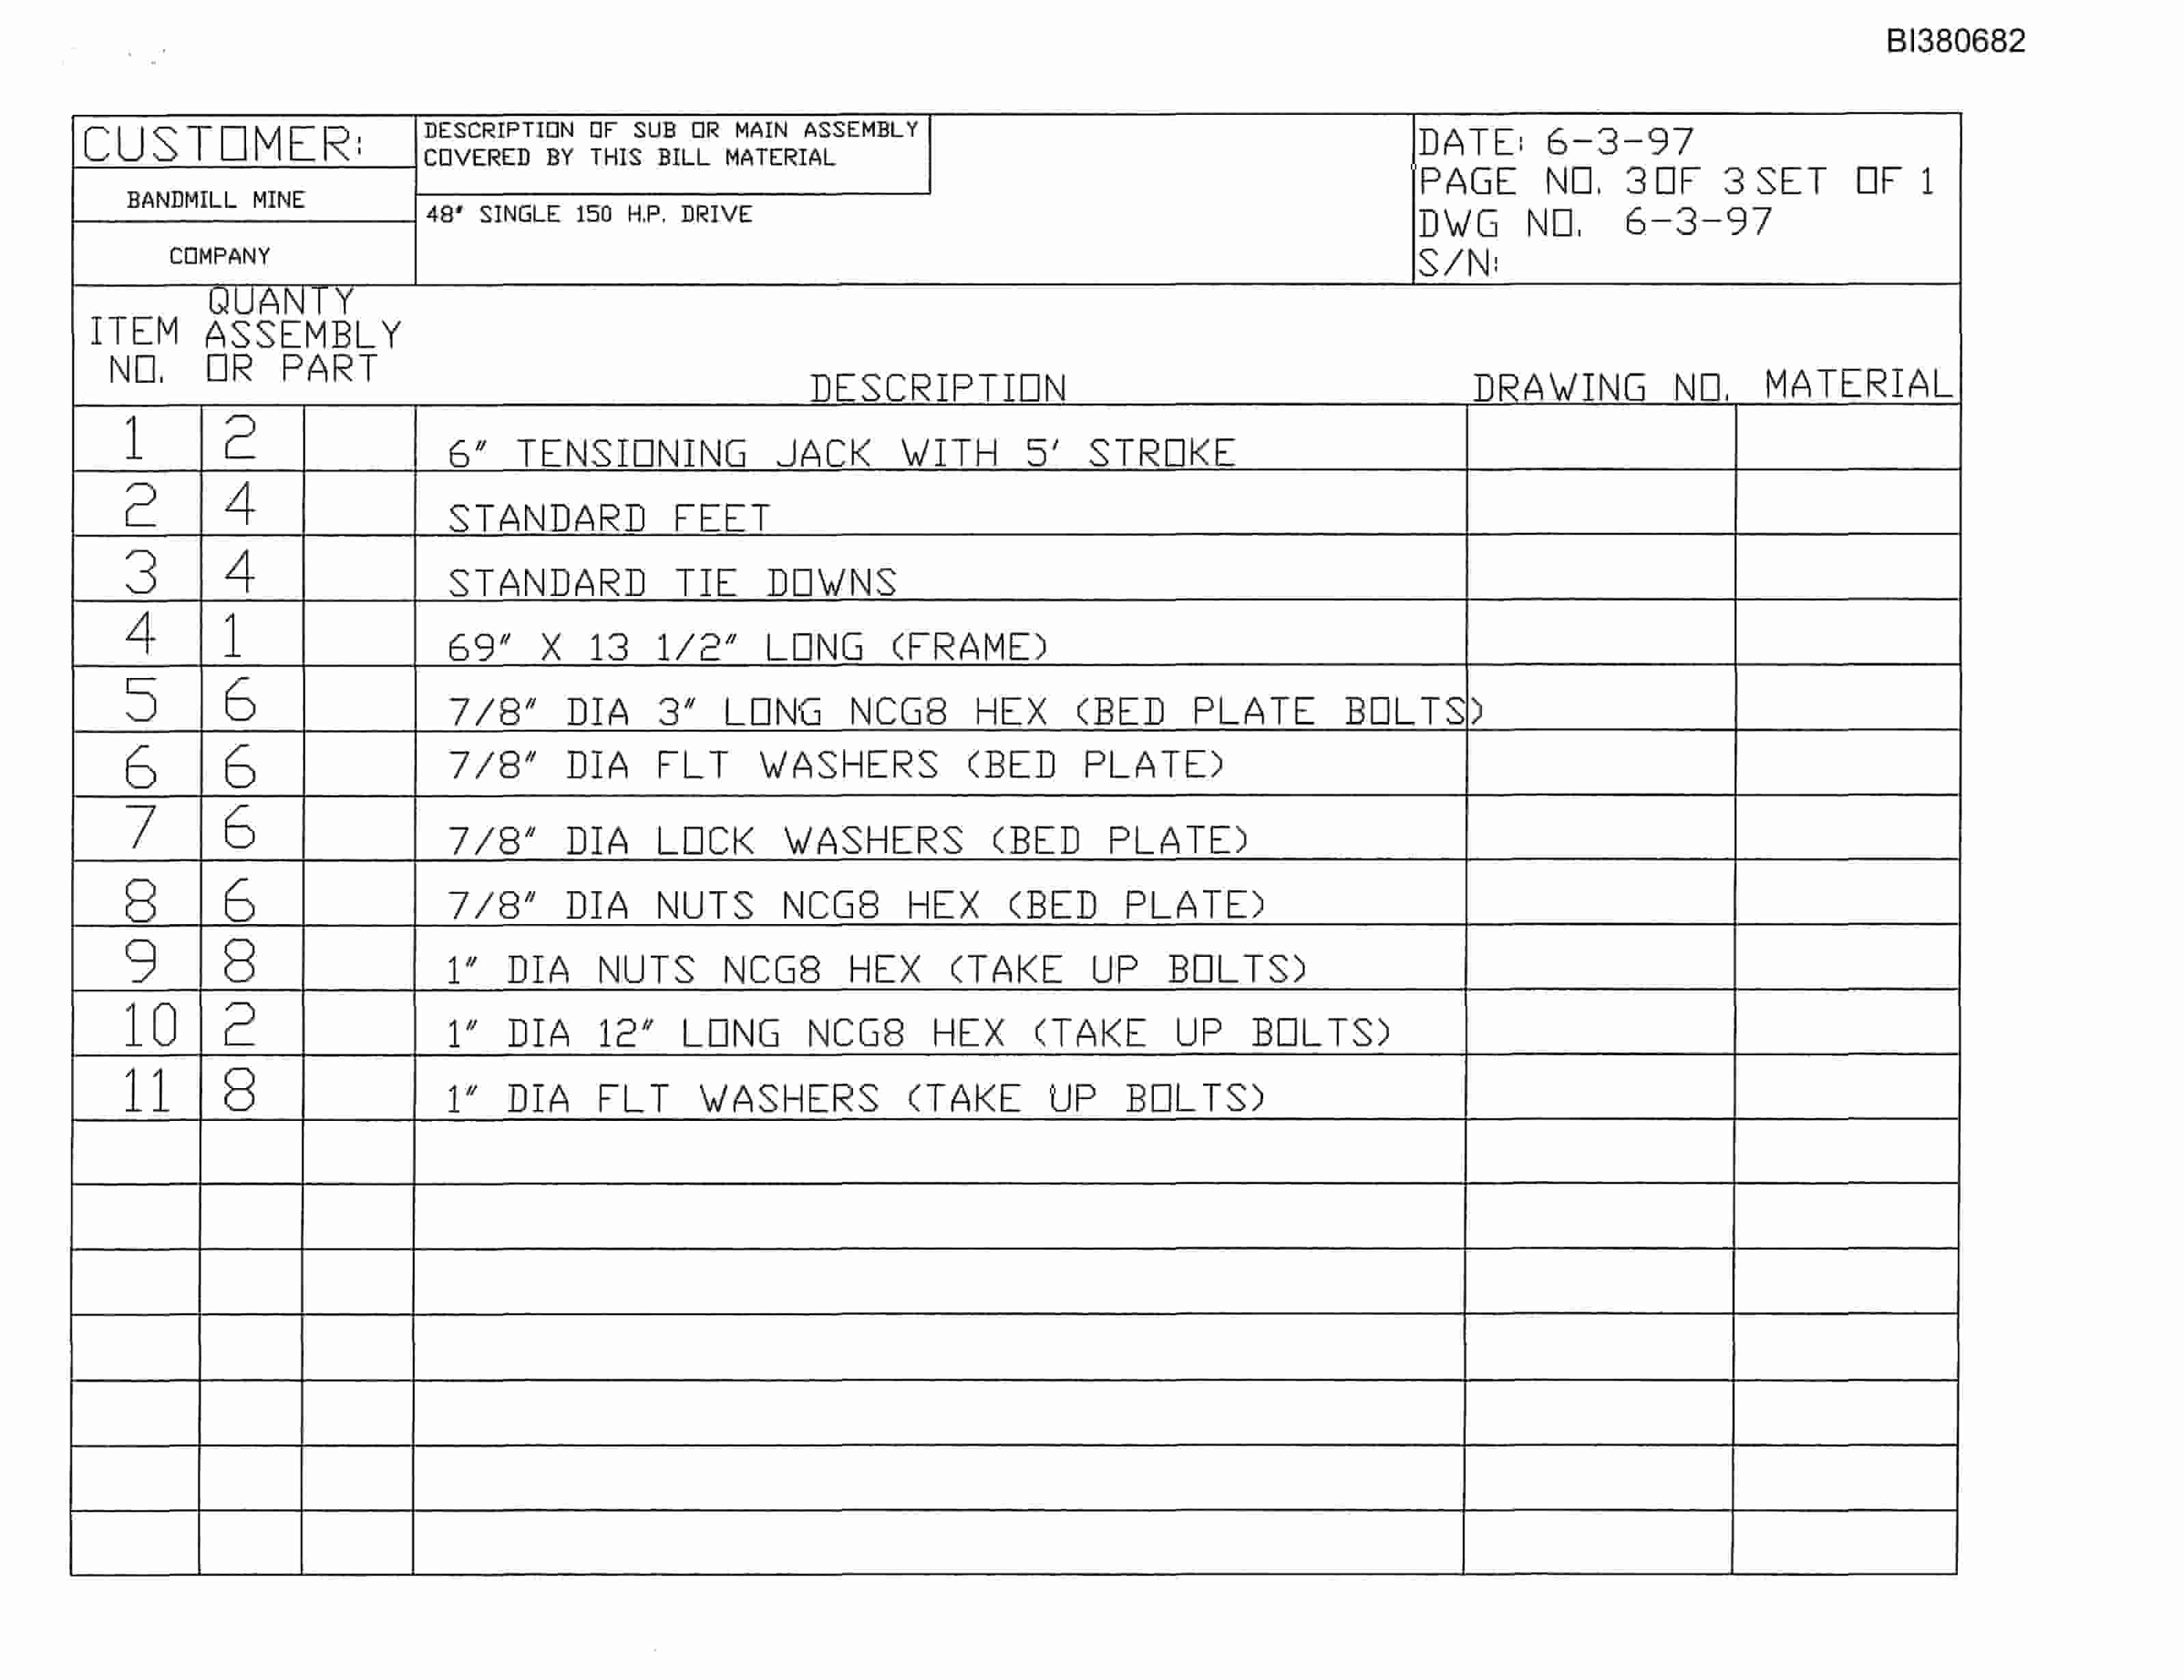 BI380682
CUSTOMER:
BANDMILL MINE
COMPANY
DESCRIPTION OF SUB OR MAIN ASSEMBLY
COVERED BY THIS BILL MATERIAL
48" SINGLE 150 H.P. DRIVE
DATE: 6-3-97
PAGE NO. 3 OF 3 SET OF 1
DWG NO. 6-3-97
S/N:
ITEM NO. QUANTY ASSEMBLY OR PART DESCRIPTION DRAWING NO. MATERIAL
1 2 6" TENSIONING JACK WITH 5' STROKE
2 4 STANDARD FEET
3 4 STANDARD TIE DOWNS
4 1 69" X 13 1/2" LONG (FRAME)
5 6 7/8" DIA 3" LONG NCG8 HEX (BED PLATE BOLTS)
6 6 7/8" DIA FLT WASHERS (BED PLATE)
7 6 7/8" DIA LOCK WASHERS (BED PLATE)
8 6 7/8" DIA NUTS NCG8 HEX (BED PLATE)
9 8 1" DIA NUTS NCG8 HEX (TAKE UP BOLTS)
10 2 1" DIA 12" LONG NCG8 HEX (TAKE UP BOLTS)
11 8 1" DIA FLT WASHERS (TAKE UP BOLTS)